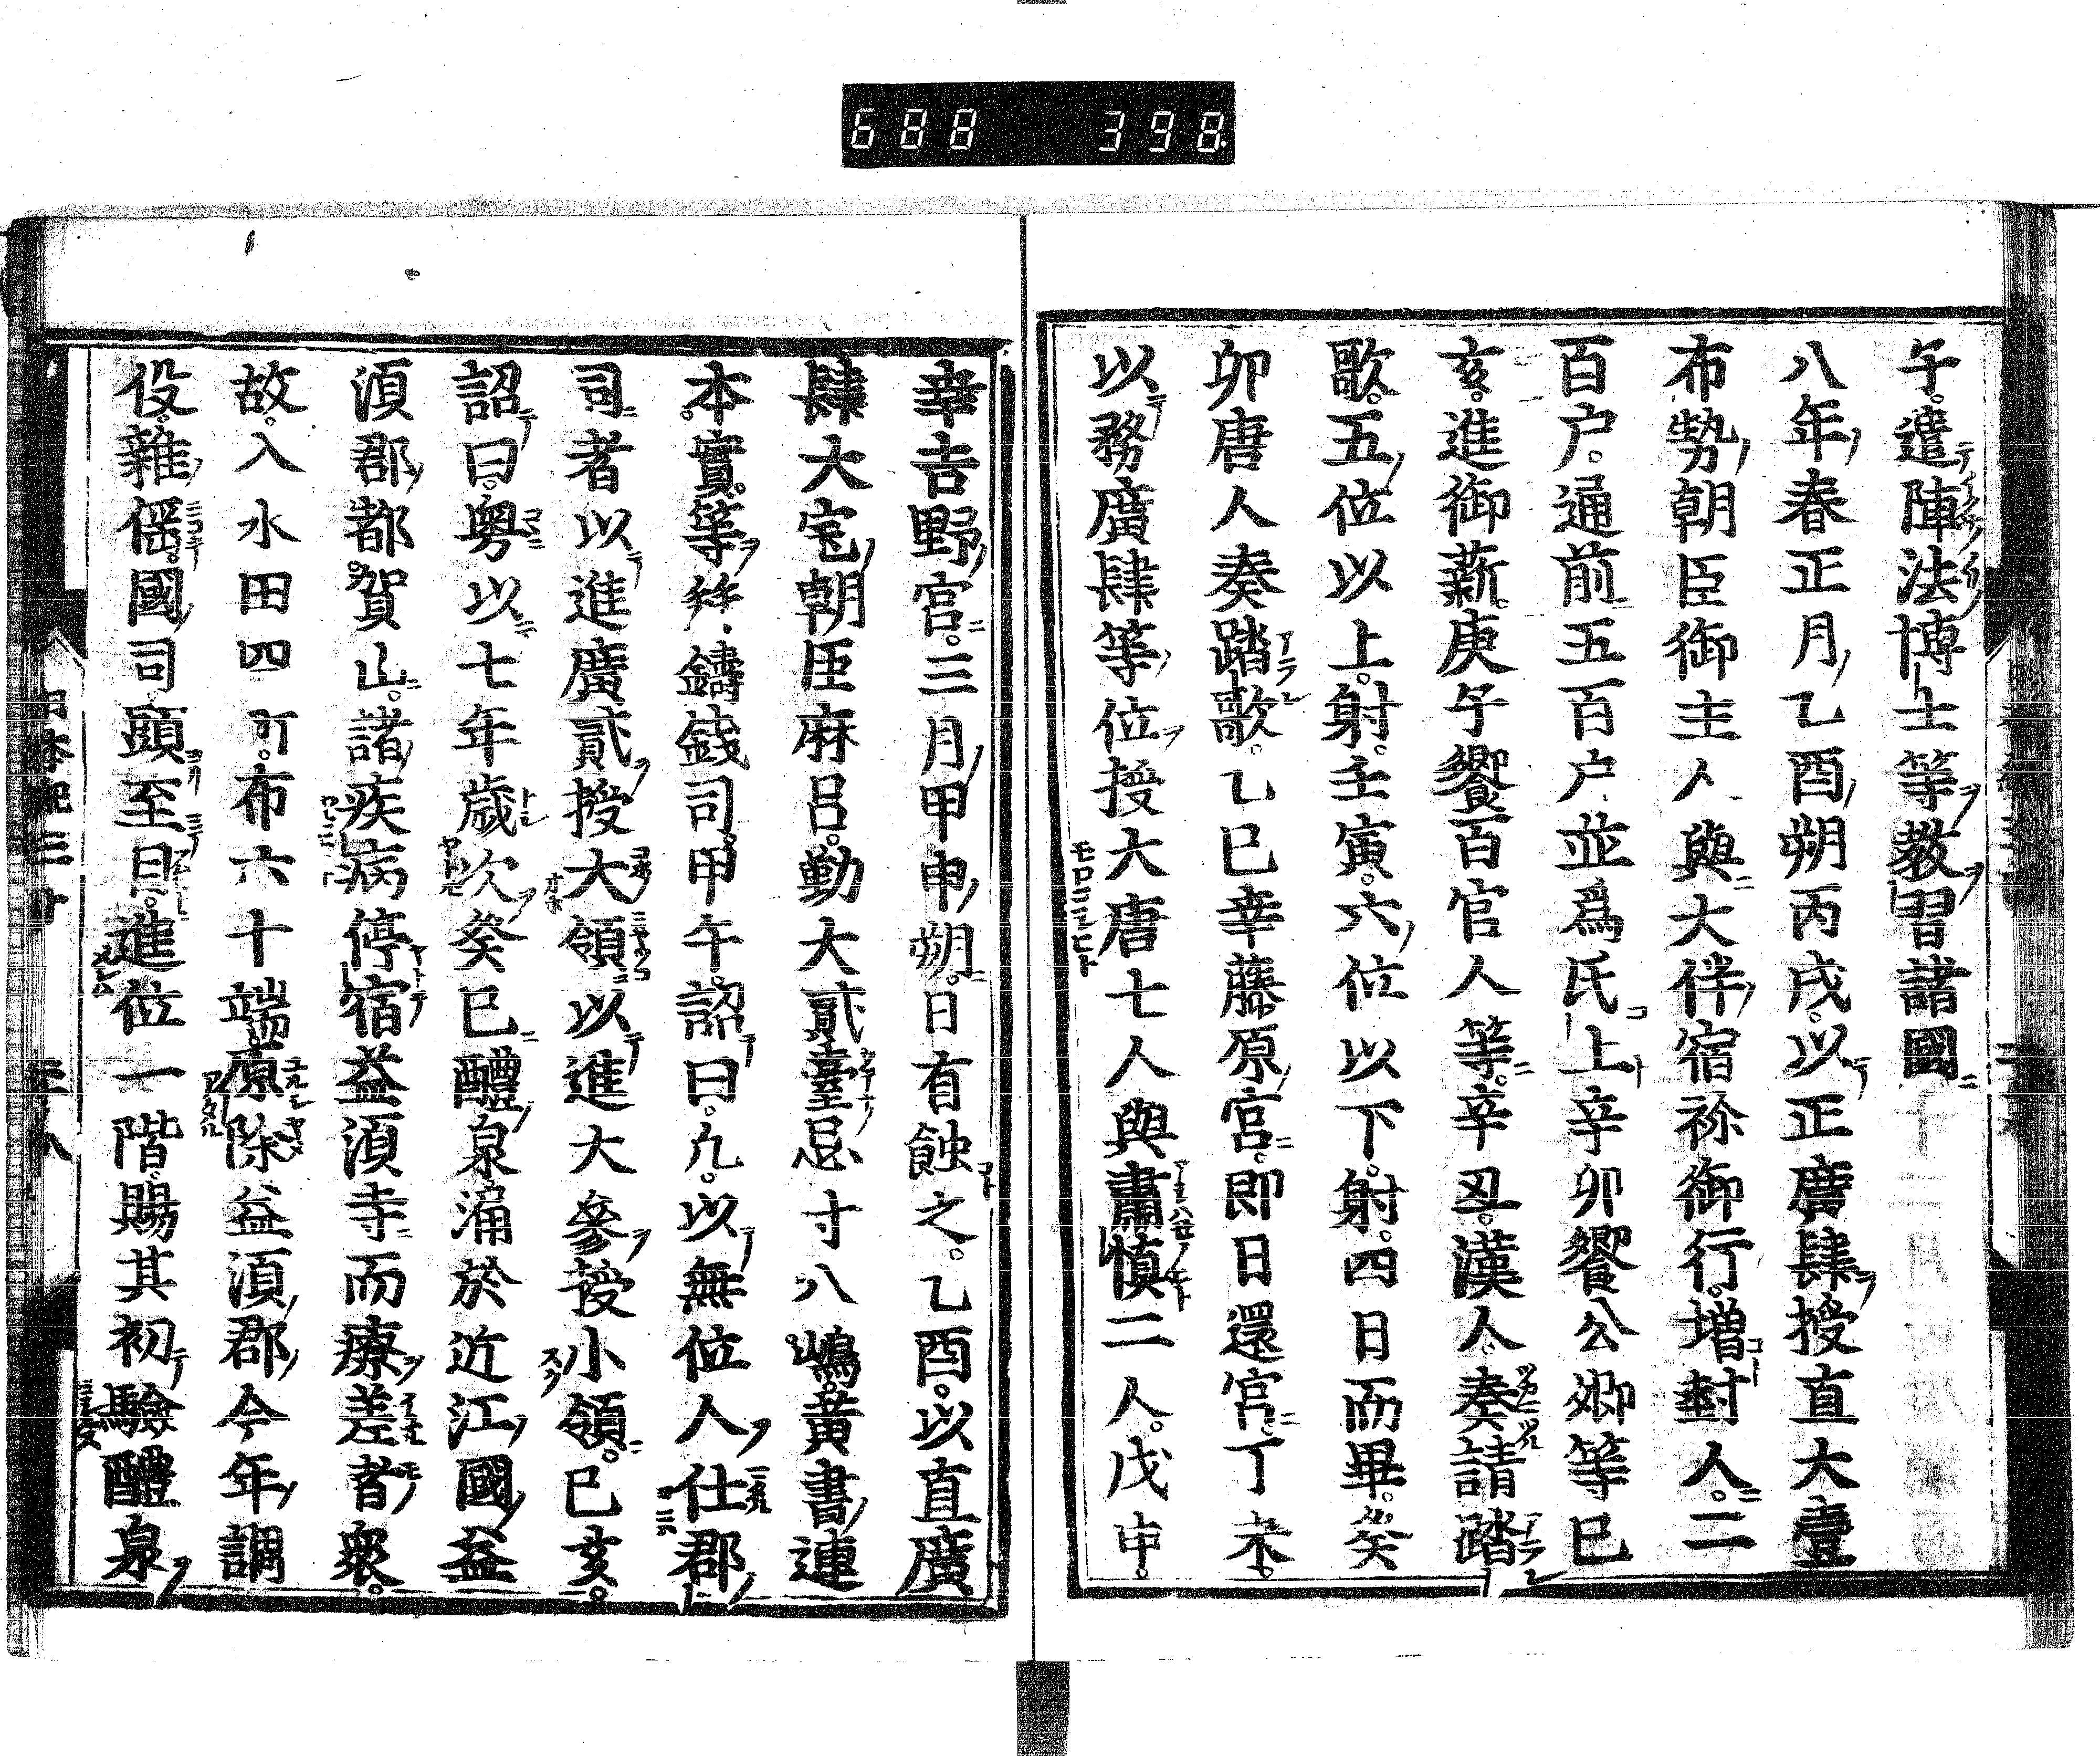 688 398
午遣陣法博士等教習諸國
八年春正月乙酉朔丙戌以正廣肆授直大壹
布勢朝臣御主人與大伴宿祢御行増封人二
百户通前五百户並爲氏上辛卯饗公卿等已
亥進御薪庚子饗百官人等辛丑漢人奏請踏
歌五位以上射壬寅六位以下射四日而畢癸
卯唐人奏踏歌乙巳幸藤原宮即日還宮丁未
以務廣肆等位授大唐七人與肅慎二人戊申
幸吉野宮三月甲申朔日有蝕之乙酉以直廣
肆大宅朝臣麻呂勤大貳臺忌寸八嶋黄書連
本實等拜鑄錢司甲午詔曰凢以無位人仕郡
司者以進廣貳授大領以進大參授小領已亥
詔曰粤以七年歳次癸巳醴泉涌於近江國益
湏郡都賀山諸疾病停宿益湏寺而療差者衆
故入水田四町布六十端原除益湏郡今年調
役雜徭國司頭至目進位一階賜其初驗醴泉